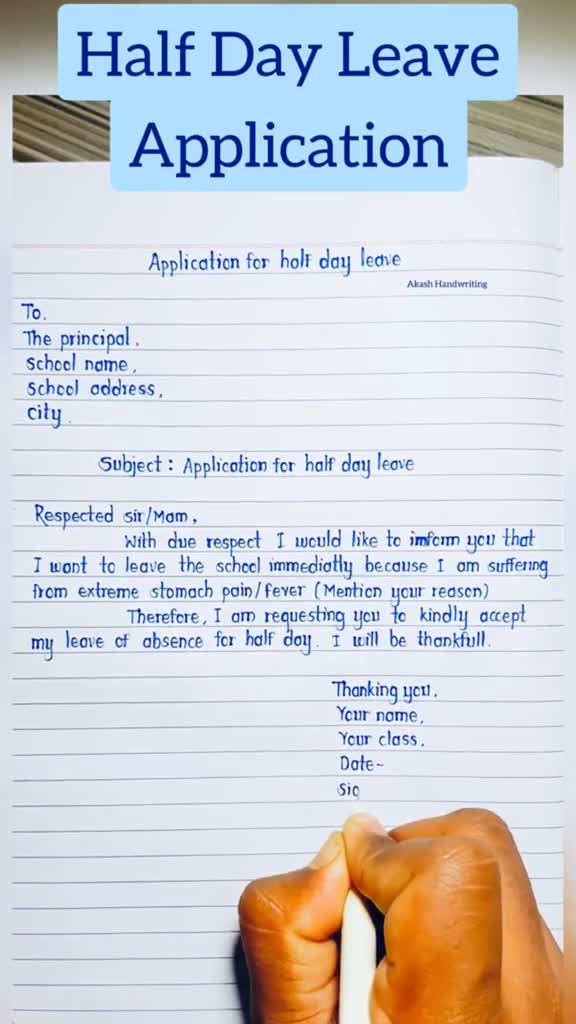 Half Day Leave
Application
Application for half day leave
Akash Handwriting
To.
The principal,
School name,
School address,
city.
Subject : Application for half day leave
Respected sir/Mam,
With due respect I would like to imform you that
I want to leave the school immediatly because I am suffering
from extreme stomach pain/fever (Mention your reason)
Therefore, I am requesting you to kindly accept
my leave of absence for half day. I will be thankfull.
Thanking you,
Your name,
Your class,
Date-
Sig